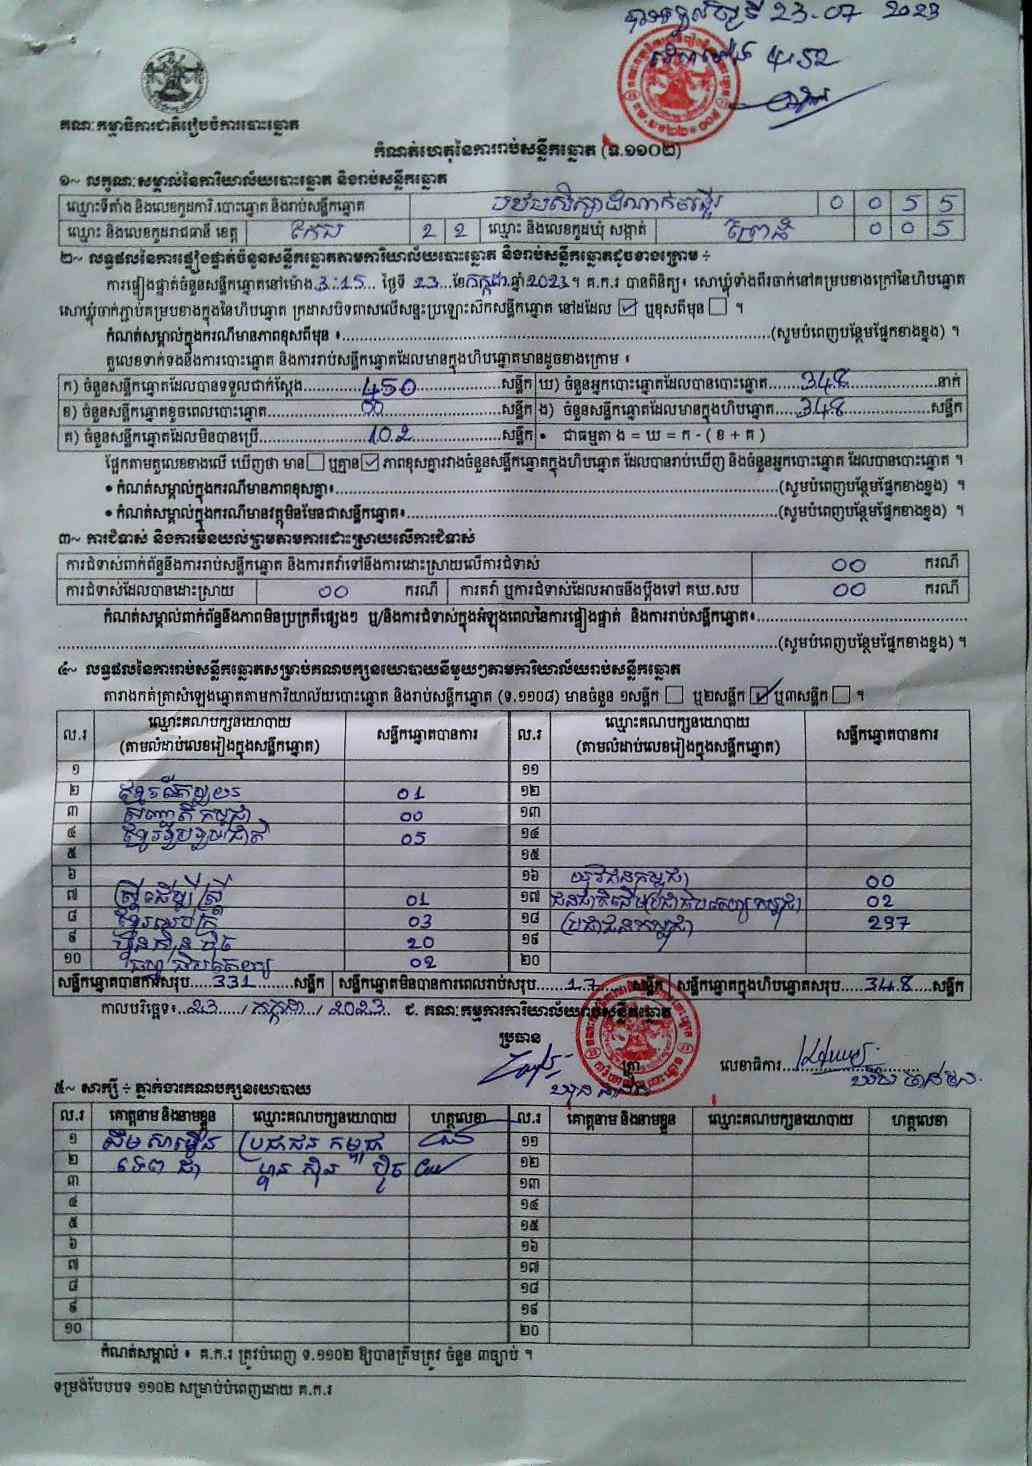 23-07 2023
គណៈកម្មាធិការជាតិរៀបចំការបោះឆ្នោត
កំណត់ហេតុនៃការរាប់សន្លឹកឆ្នោត (ទ.១១០២)
១~ លក្ខណៈសម្គាល់នៃការិយាល័យបោះឆ្នោត និងរាប់សន្លឹកឆ្នោត
ឈ្មោះទីតាំង និងលេខកូដការិ.បោះឆ្នោត និងរាប់សន្លឹកឆ្នោត 0 0 5 5
ឈ្មោះ និងលេខកូដរាជធានី ខេត្ត កែប 2 2 ឈ្មោះ និងលេខកូដឃុំ សង្កាត់ 0 0 5
២~ លទ្ធផលនៃការផ្ទៀងផ្ទាត់ចំនួនសន្លឹកឆ្នោតតាមការិយាល័យបោះឆ្នោត និងរាប់សន្លឹកឆ្នោតដូចខាងក្រោម ÷
ការផ្ទៀងផ្ទាត់ចំនួនសន្លឹកឆ្នោតនៅម៉ោង 3:15 ថ្ងៃទី 23 ខែកក្កដា ឆ្នាំ 2023 ។ គ.ក.រ បានពិនិត្យ៖ សោឃ្លុំទាំងពីរចាក់នៅគម្របខាងក្រៅនៃហិបឆ្នោត
សោឃ្លុំចាក់ភ្ជាប់គម្របខាងក្នុងនៃហិបឆ្នោត ក្រដាសបិទពាសលើសន្ទះប្រឡោះស៊កសន្លឹកឆ្នោត នៅដដែល ☑ ឬខុសពីមុន ☐ ។
កំណត់សម្គាល់ក្នុងករណីមានភាពខុសពីមុន ៖ (សូមបំពេញបន្ថែមផ្នែកខាងខ្នង) ។
តួលេខទាក់ទងនឹងការបោះឆ្នោត និងការរាប់សន្លឹកឆ្នោតដែលមានក្នុងហិបឆ្នោតមានដូចខាងក្រោម ៖
ក) ចំនួនសន្លឹកឆ្នោតដែលបានទទួលជាក់ស្តែង 450 សន្លឹក ឃ) ចំនួនអ្នកបោះឆ្នោតដែលបានបោះឆ្នោត 348 នាក់
ខ) ចំនួនសន្លឹកឆ្នោតខូចពេលបោះឆ្នោត 00 សន្លឹក ង) ចំនួនសន្លឹកឆ្នោតដែលមានក្នុងហិបឆ្នោត 348 សន្លឹក
គ) ចំនួនសន្លឹកឆ្នោតដែលមិនបានប្រើ 102 សន្លឹក • ជាធម្មតា ង = ឃ = ក - ( ខ + គ )
ផ្អែកតាមតួលេខខាងលើ ឃើញថា មាន ☐ ឬគ្មាន ☑ ភាពខុសគ្នារវាងចំនួនសន្លឹកឆ្នោតក្នុងហិបឆ្នោត ដែលបានរាប់ឃើញ និងចំនួនអ្នកបោះឆ្នោត ដែលបានបោះឆ្នោត ។
• កំណត់សម្គាល់ក្នុងករណីមានភាពខុសគ្នា៖ (សូមបំពេញបន្ថែមផ្នែកខាងខ្នង) ។
• កំណត់សម្គាល់ក្នុងករណីមានវត្ថុមិនមែនជាសន្លឹកឆ្នោត៖ (សូមបំពេញបន្ថែមផ្នែកខាងខ្នង) ។
៣~ ការជំទាស់ និងការមិនយល់ព្រមតាមការដោះស្រាយលើការជំទាស់
ការជំទាស់ពាក់ព័ន្ធនឹងការរាប់សន្លឹកឆ្នោត និងការតវ៉ាទៅនឹងការដោះស្រាយលើការជំទាស់ 00 ករណី
ការជំទាស់ដែលបានដោះស្រាយ 00 ករណី ការតវ៉ា ឬការជំទាស់ដែលអាចនឹងប្តឹងទៅ គឃ.សប 00 ករណី
កំណត់សម្គាល់ពាក់ព័ន្ធនឹងភាពមិនប្រក្រតីផ្សេងៗ ឬ/និងការជំទាស់ក្នុងអំឡុងពេលនៃការផ្ទៀងផ្ទាត់ និងការរាប់សន្លឹកឆ្នោត៖
(សូមបំពេញបន្ថែមផ្នែកខាងខ្នង) ។
៤~ លទ្ធផលនៃការរាប់សន្លឹកឆ្នោតសម្រាប់គណបក្សនយោបាយនីមួយៗតាមការិយាល័យរាប់សន្លឹកឆ្នោត
តារាងកត់ត្រាសំឡេងឆ្នោតតាមការិយាល័យបោះឆ្នោត និងរាប់សន្លឹកឆ្នោត (ទ.១១០៨) មានចំនួន ១សន្លឹក ☐ ឬ២សន្លឹក ☑ ឬ៣សន្លឹក ☐ ។
ល.រ ឈ្មោះគណបក្សនយោបាយ សន្លឹកឆ្នោតបានការ ល.រ ឈ្មោះគណបក្សនយោបាយ សន្លឹកឆ្នោតបានការ
(តាមលំដាប់លេខរៀងក្នុងសន្លឹកឆ្នោត) (តាមលំដាប់លេខរៀងក្នុងសន្លឹកឆ្នោត)
១ ១១
២ 01 ១២
៣ 00 ១៣
៤ ខ្មែររួបរួមជាតិ 05 ១៤
៥ ១៥
៦ ១៦ យុវជនកម្ពុជា 00
៧ ស្ត្រីដើម្បីស្ត្រី 01 ១៧ ជនជាតិដើមប្រជាធិបតេយ្យកម្ពុជា 02
៨ 03 ១៨ ប្រជាជនកម្ពុជា 297
៩ ហ្វ៊ុនស៊ិនប៉ិច 20 ១៩
១០ 02 ២០
សន្លឹកឆ្នោតបានការសរុប 331 សន្លឹក សន្លឹកឆ្នោតមិនបានការពេលរាប់សរុប 17 សន្លឹក សន្លឹកឆ្នោតក្នុងហិបឆ្នោតសរុប 348 សន្លឹក
កាលបរិច្ឆេទ៖ 23 / កក្កដា / 2023 ជ. គណៈកម្មការការិយាល័យរាប់សន្លឹកឆ្នោត
ប្រធាន
ត្រា លេខាធិការ
៥~ សាក្សី ÷ ភ្នាក់ងារគណបក្សនយោបាយ
ល.រ គោត្តនាម និងនាមខ្លួន ឈ្មោះគណបក្សនយោបាយ ហត្ថលេខា ល.រ គោត្តនាម និងនាមខ្លួន ឈ្មោះគណបក្សនយោបាយ ហត្ថលេខា
១ ប្រជាជន កម្ពុជា ១១
២ ទេព ជា ហ្វ៊ុន ស៊ិន ប៉ិច ១២
៣ ១៣
៤ ១៤
៥ ១៥
៦ ១៦
៧ ១៧
៨ ១៨
៩ ១៩
១០ ២០
កំណត់សម្គាល់ ៖ គ.ក.រ ត្រូវបំពេញ ទ.១១០២ ឱ្យបានត្រឹមត្រូវ ចំនួន ៣ច្បាប់ ។
ទម្រង់បែបបទ ១១០២ សម្រាប់បំពេញដោយ គ.ក.រ